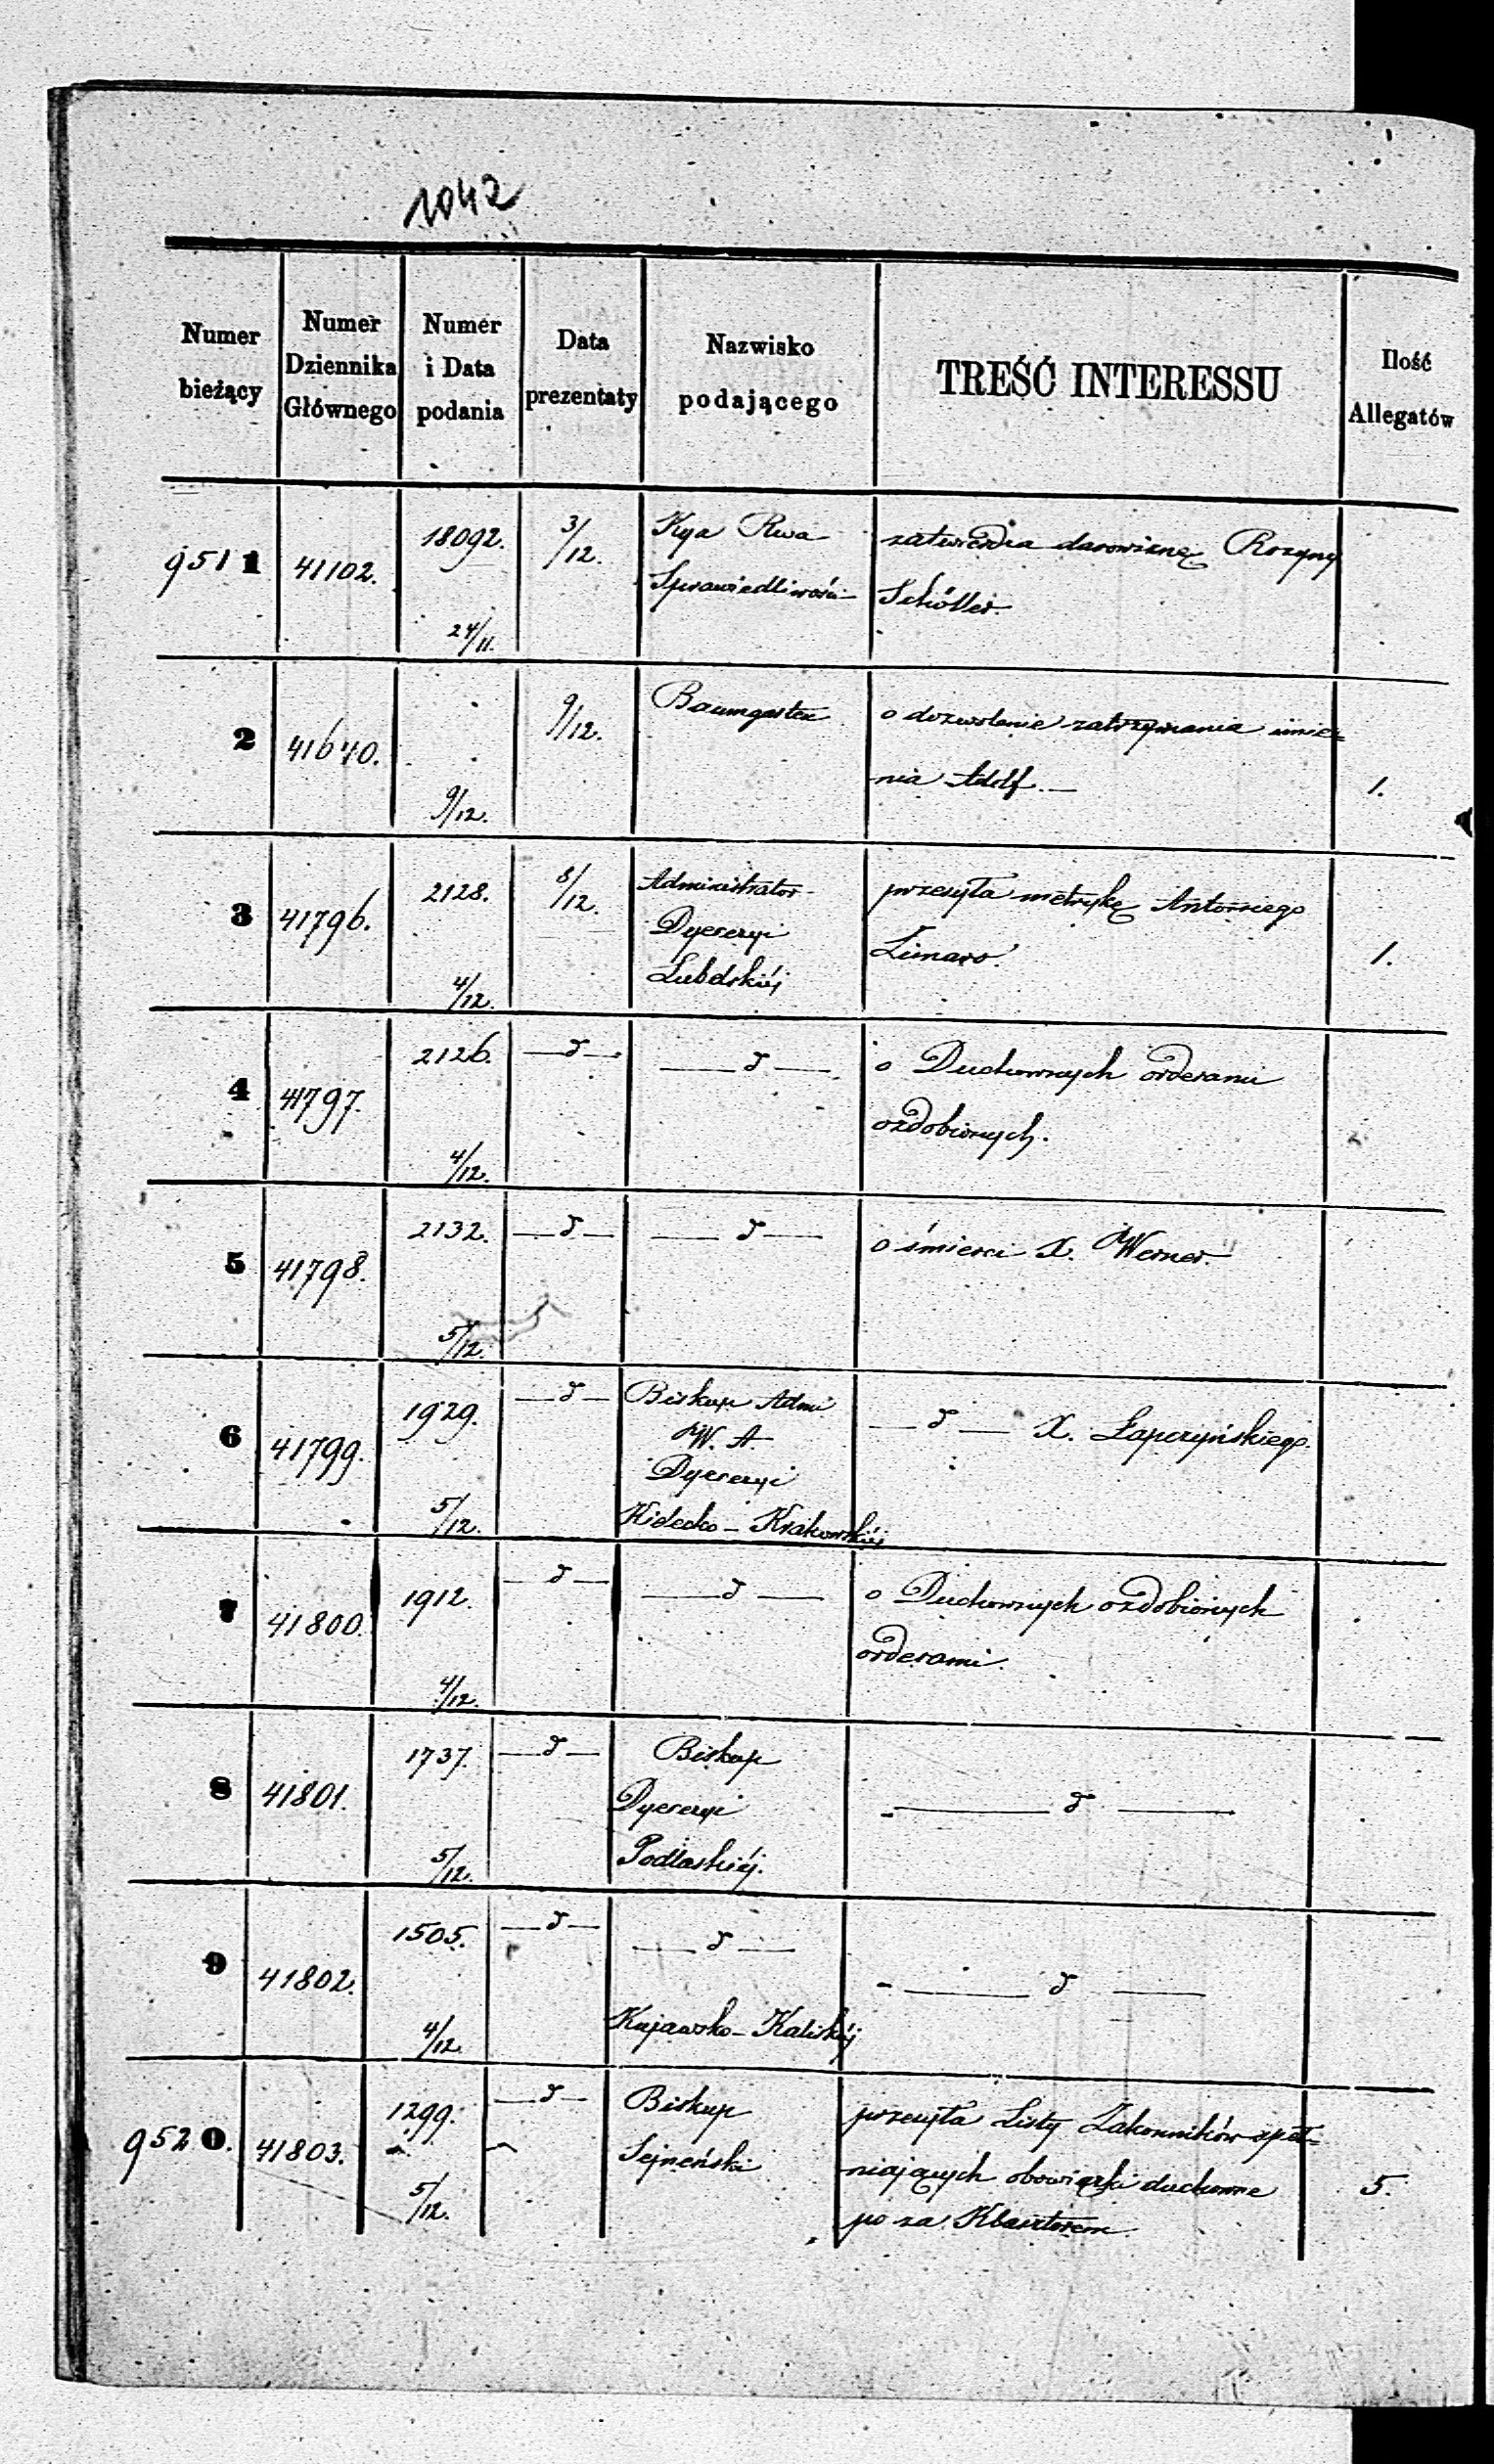 1042
Numer bieżący
Numer Dziennika Głównego
Numer i Data podania
Data prezentaty
Nazwisko podającego
TREŚĆ INTERESSU
Ilość Allegatów
9511 41102. 18092. 24/11. 3/12. Kya Rwa Sprawiedliwości zatwierdza darowiznę Rozyny Schöller.
2 41640. 9/12. 9/12. Baumgarten o dozwolenie zatrzymania imie=
nia Adolf. 1.
3 41796. 2128. 4/12. 8/12. Administrator Dyecezyi Lubelskiéj przesyła metrykę Antoniego
1.
4 41797. 2126. 4/12. —d— —d— o Duchownych orderami
ozdobionych.
5 41798. 2132. 5/12. —d— —d— o śmierci X. Werner.
6 41799. 1929. 5/12. —d— Biskup Admi W. A. Dyecezyi Kielecko-Krakowskiéj —d— X. Łapczyńskiego.
7 41800. 1912. 4/12. —d— —d— o Duchownych ozdobionych
orderami.
8 41801. 1737. 5/12. —d— Biskup Dyecezyi Podlaskiéj. —d—
9 41802. 1505. 4/12. —d— —d— Kujawsko-Kaliskiéj —d—
9520. 41803. 1299. 5/12. —d— Biskup Sejneński przesyła Listy Zakonników speł=
niających obowiązki duchowne
po za Klasztorem 5.